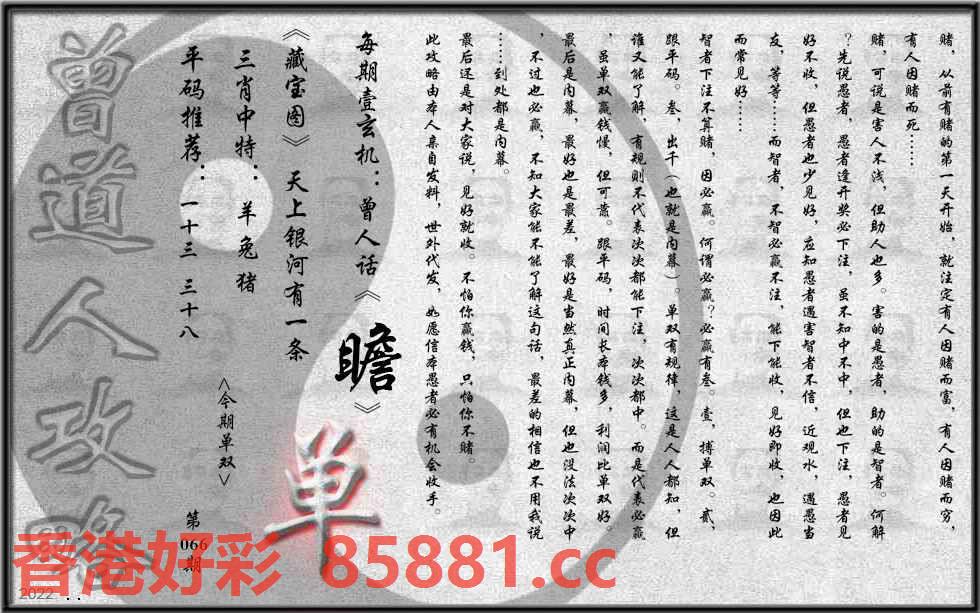 赌，从前有赌的第一天开始，就注定有人因赌而富，有人因赌而穷，
有人因赌而死……
赌，可说是害人不浅，但助人也多。害的是愚者，助的是智者。何解
？先说愚者，愚者逢开奖必下注，虽不知中不中，但也下注，愚者见
好不收，但愚者也少见好，应知愚者遇害智者不信，近观水，遇愚当
友，等等……而智者，不智必赢不注，能下能收，见好即收，也因此
而常见好……
智者下注不算赌，因必赢。何谓必赢？必赢有叁。壹，搏单双。贰，
跟平码。叁，出千（也就是内幕）。单双有规律，这是人人都知，但
谁又能了解，有规则不代表次次都能下注，次次都中。而是代表必赢
，虽单双赢钱慢，但可靠。跟平码，时间长本钱多，利润比单双好。
最后是内幕，最好也是最差，最好是当然真正内幕，但也没法次次中
，不过也必赢，不知大家能不能了解这句话，最差的相信也不用我说
……到处都是内幕。
最后还是对大家说，见好就收。不怕你赢钱，只怕你不赌。
此攻略由本人亲自发料，世外代发，如愿信本愚者必有机会收手。
每期壹玄机：曾人话《瞻》
《藏宝图》 天上银河有一条
三肖中特： 羊兔猪
平码推荐： 一十三 三十八
<今期单双>
单
第066期
曾道人攻略
香港好彩 85881.cc
2022